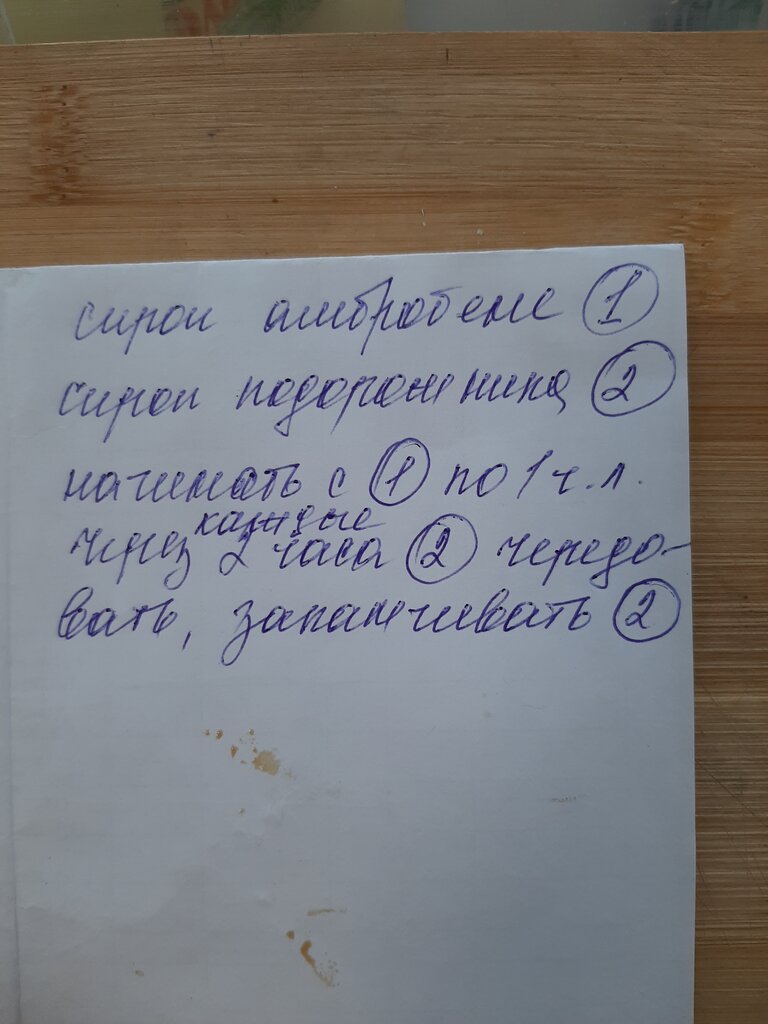 сироп амбробене ①
сироп подорожника ②
начинать с ① по 1 ч.л.
через каждые 2 часа ② чередо-
вать, заканчивать ②